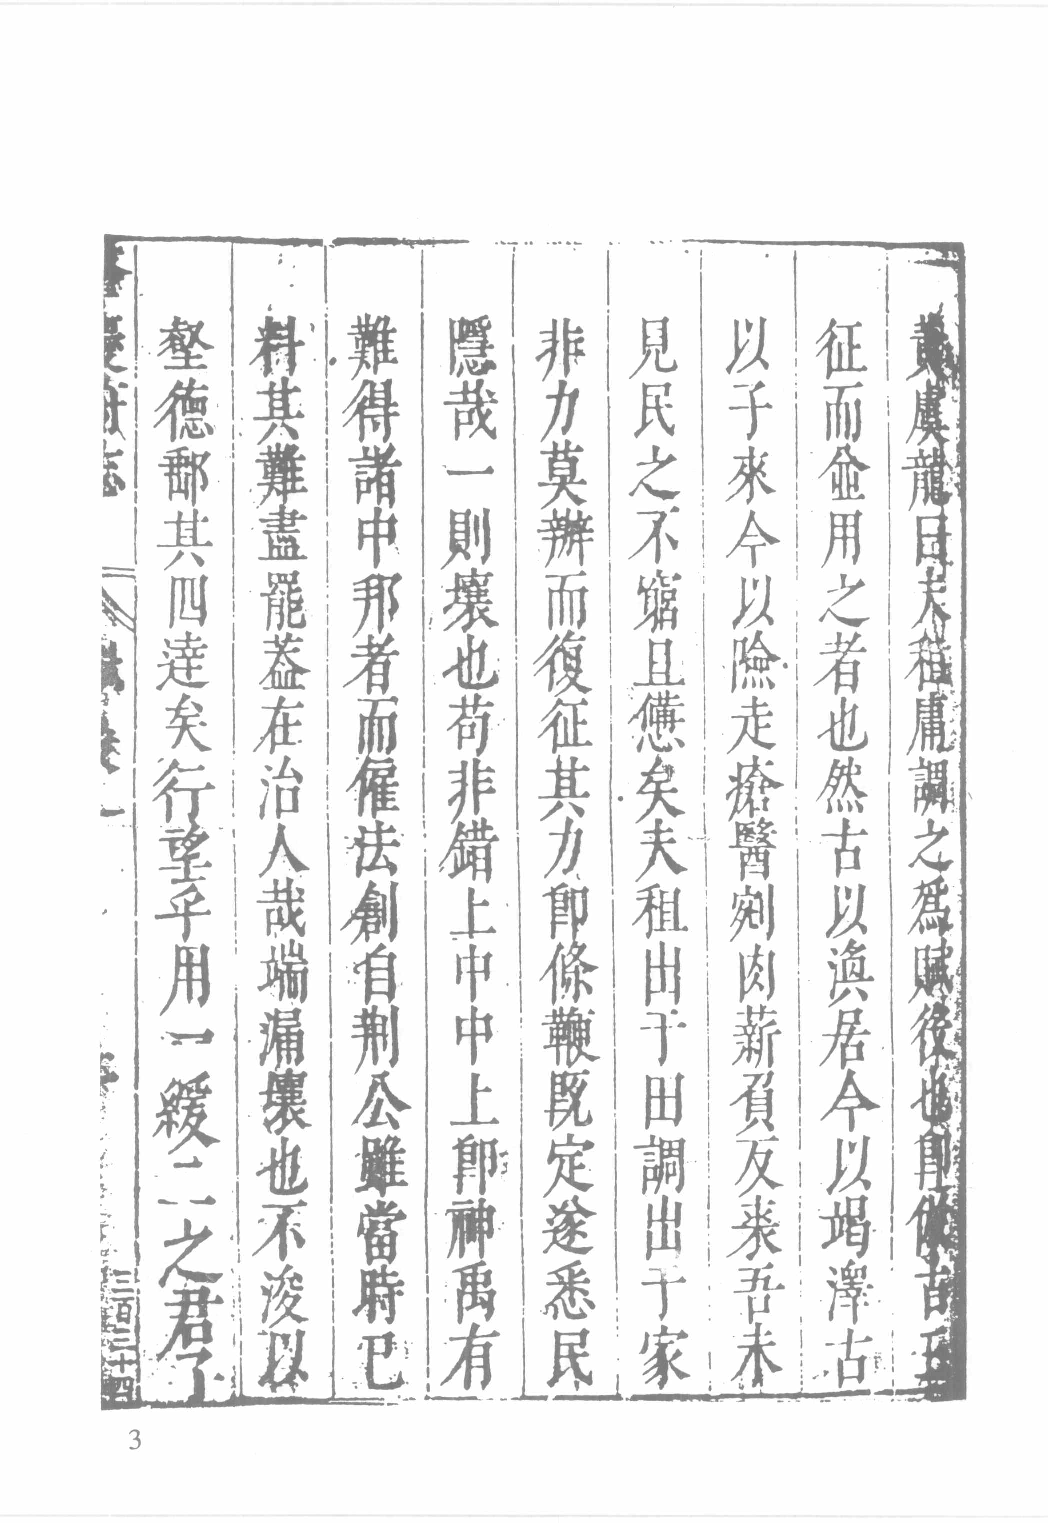 黄虞龍曰夫租庸調之為賦役也卽倣古
征而並用之者也然古以渙居今以竭澤古
以子來今以險走瘡醫剜肉薪負反裘吾未
見民之不窮且憊矣夫租出于田調出于家
非力莫辦而復征其力卽條鞭既定遂悉民
隱哉一則壤也苟非錯上中中上卽神禹有
難得諸中邦者而僱法創自荆公雖當時已
料其難盡罷葢在治人哉端漏壞也不浚以
壑德郵其四達矣行望乎用一緩二之君子
三百三十四
3